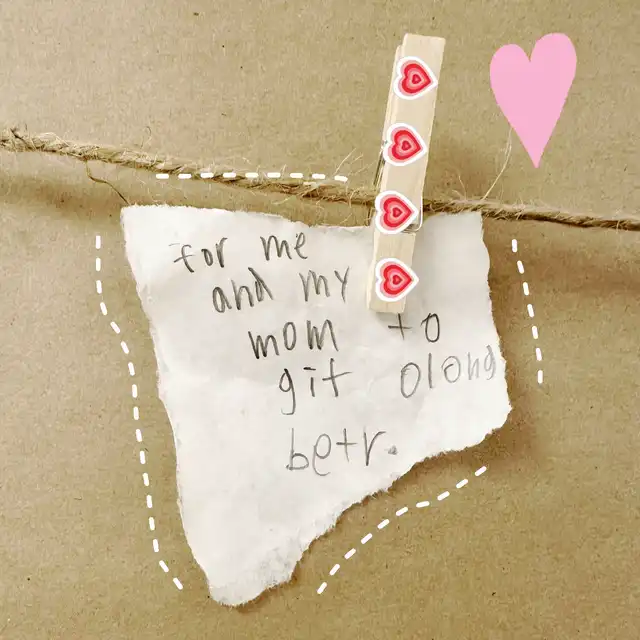 for me
and my
mom to
git olong
betr.